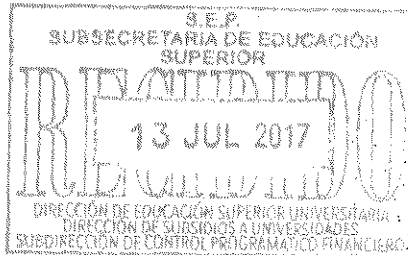 S.E.P.
SUBSECRETARÍA DE EDUCACIÓN
SUPERIOR
RECIBIDO
13 JUL 2017
DIRECCIÓN DE EDUCACIÓN SUPERIOR UNIVERSITARIA
DIRECCIÓN DE SUBSIDIOS A UNIVERSIDADES
SUBDIRECCIÓN DE CONTROL PROGRAMÁTICO FINANCIERO